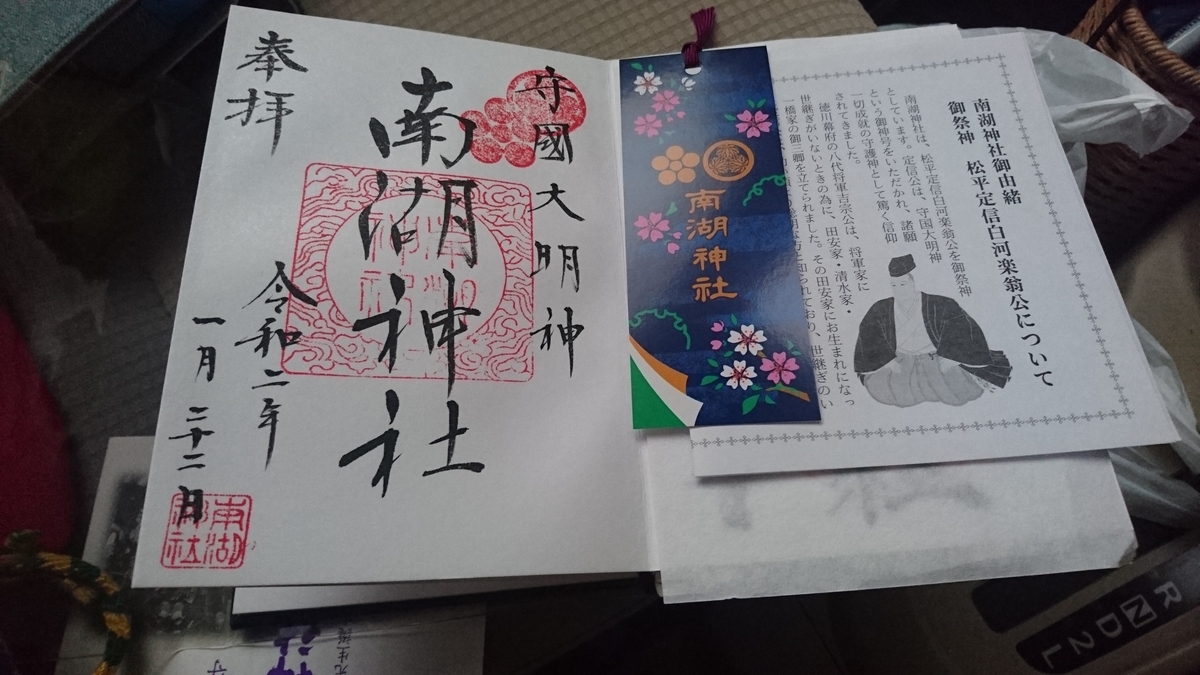 南湖神社御由緒
御祭神　松平定信白河楽翁公について
南湖神社は、松平定信白河楽翁公を御祭神
としています。定信公は、守国大明神
という御神号をいただかれ、諸願
一切成就の守護神として篤く信仰
されてきました。
徳川幕府の八代将軍吉宗公は、将軍家に
世継ぎがいないときの為に、田安家・清水家・
一橋家の御三卿を立てられました。その田安家にお生まれになっ
方と知られており、世継ぎのい
南湖神社
守國大明神
南湖神社
奉拝
令和二年
一月二十二日
南湖
神社
R N D 2 L